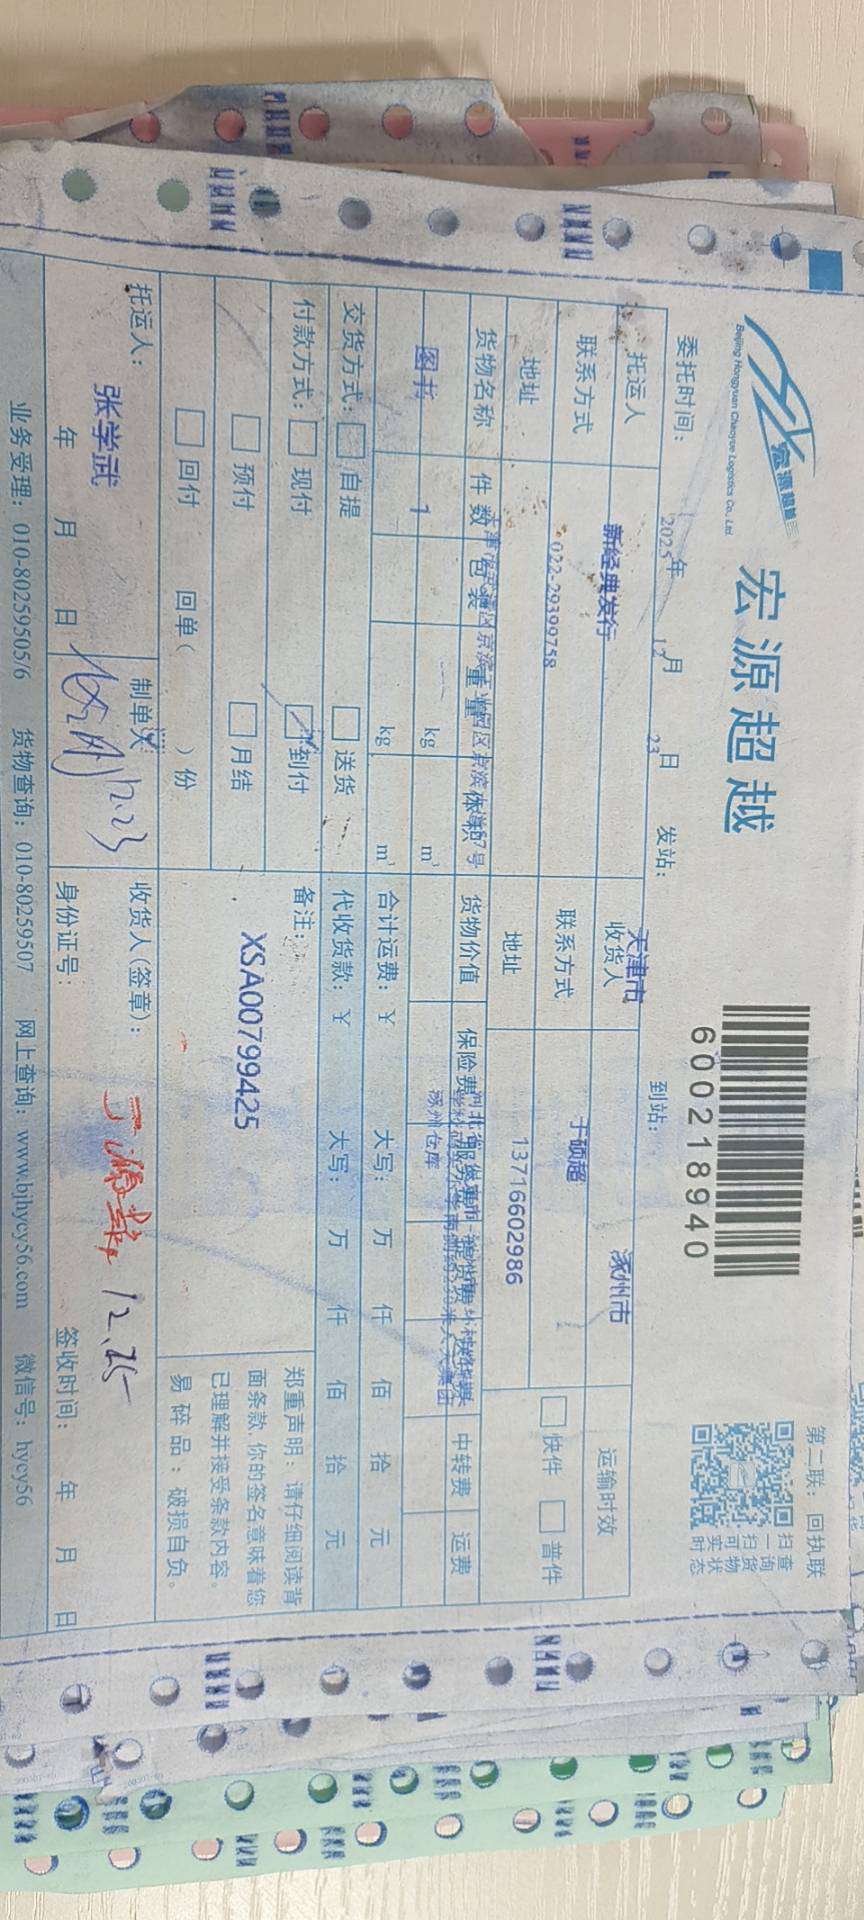 宏源超越
Beijing Hongyuan Chaoyue Logistics Co., Ltd.
宏源超越
600218940
第二联：回执联
扫一扫可实时
查询货物状态
委托时间： 2025年 12月 23日 发站： 天津市 到站： 涿州市
托运人 新经典发行 收货人 于硕超 运输时效
联系方式 022-29399758 联系方式 13716602986 快件 普件
地址 地址
货物名称 件数 包装 重量 体积 货物价值 保险费 服务费 中转费 运费
图书 1 kg m³ 涿州仓库
kg m³ 合计运费：￥ 大写： 万 仟 佰 拾 元
交货方式： 自提 送货 代收货款：￥ 大写： 万 仟 佰 拾 元
付款方式： 现付 到付 备注：
预付 月结 XSA00799425
回付 回单（ ）份
郑重声明：请仔细阅读背
面条款，你的签名意味着您
已理解并接受条款内容。
易碎品：破损自负。
托运人： 制单人： 12.23 收货人(签章)： 12.25
张学武
年 月 日 身份证号： 签收时间： 年 月 日
业务受理：010-80259505/6 货物查询：010-80259507 网上查询：www.bjhycy56.com 微信号：hycy56